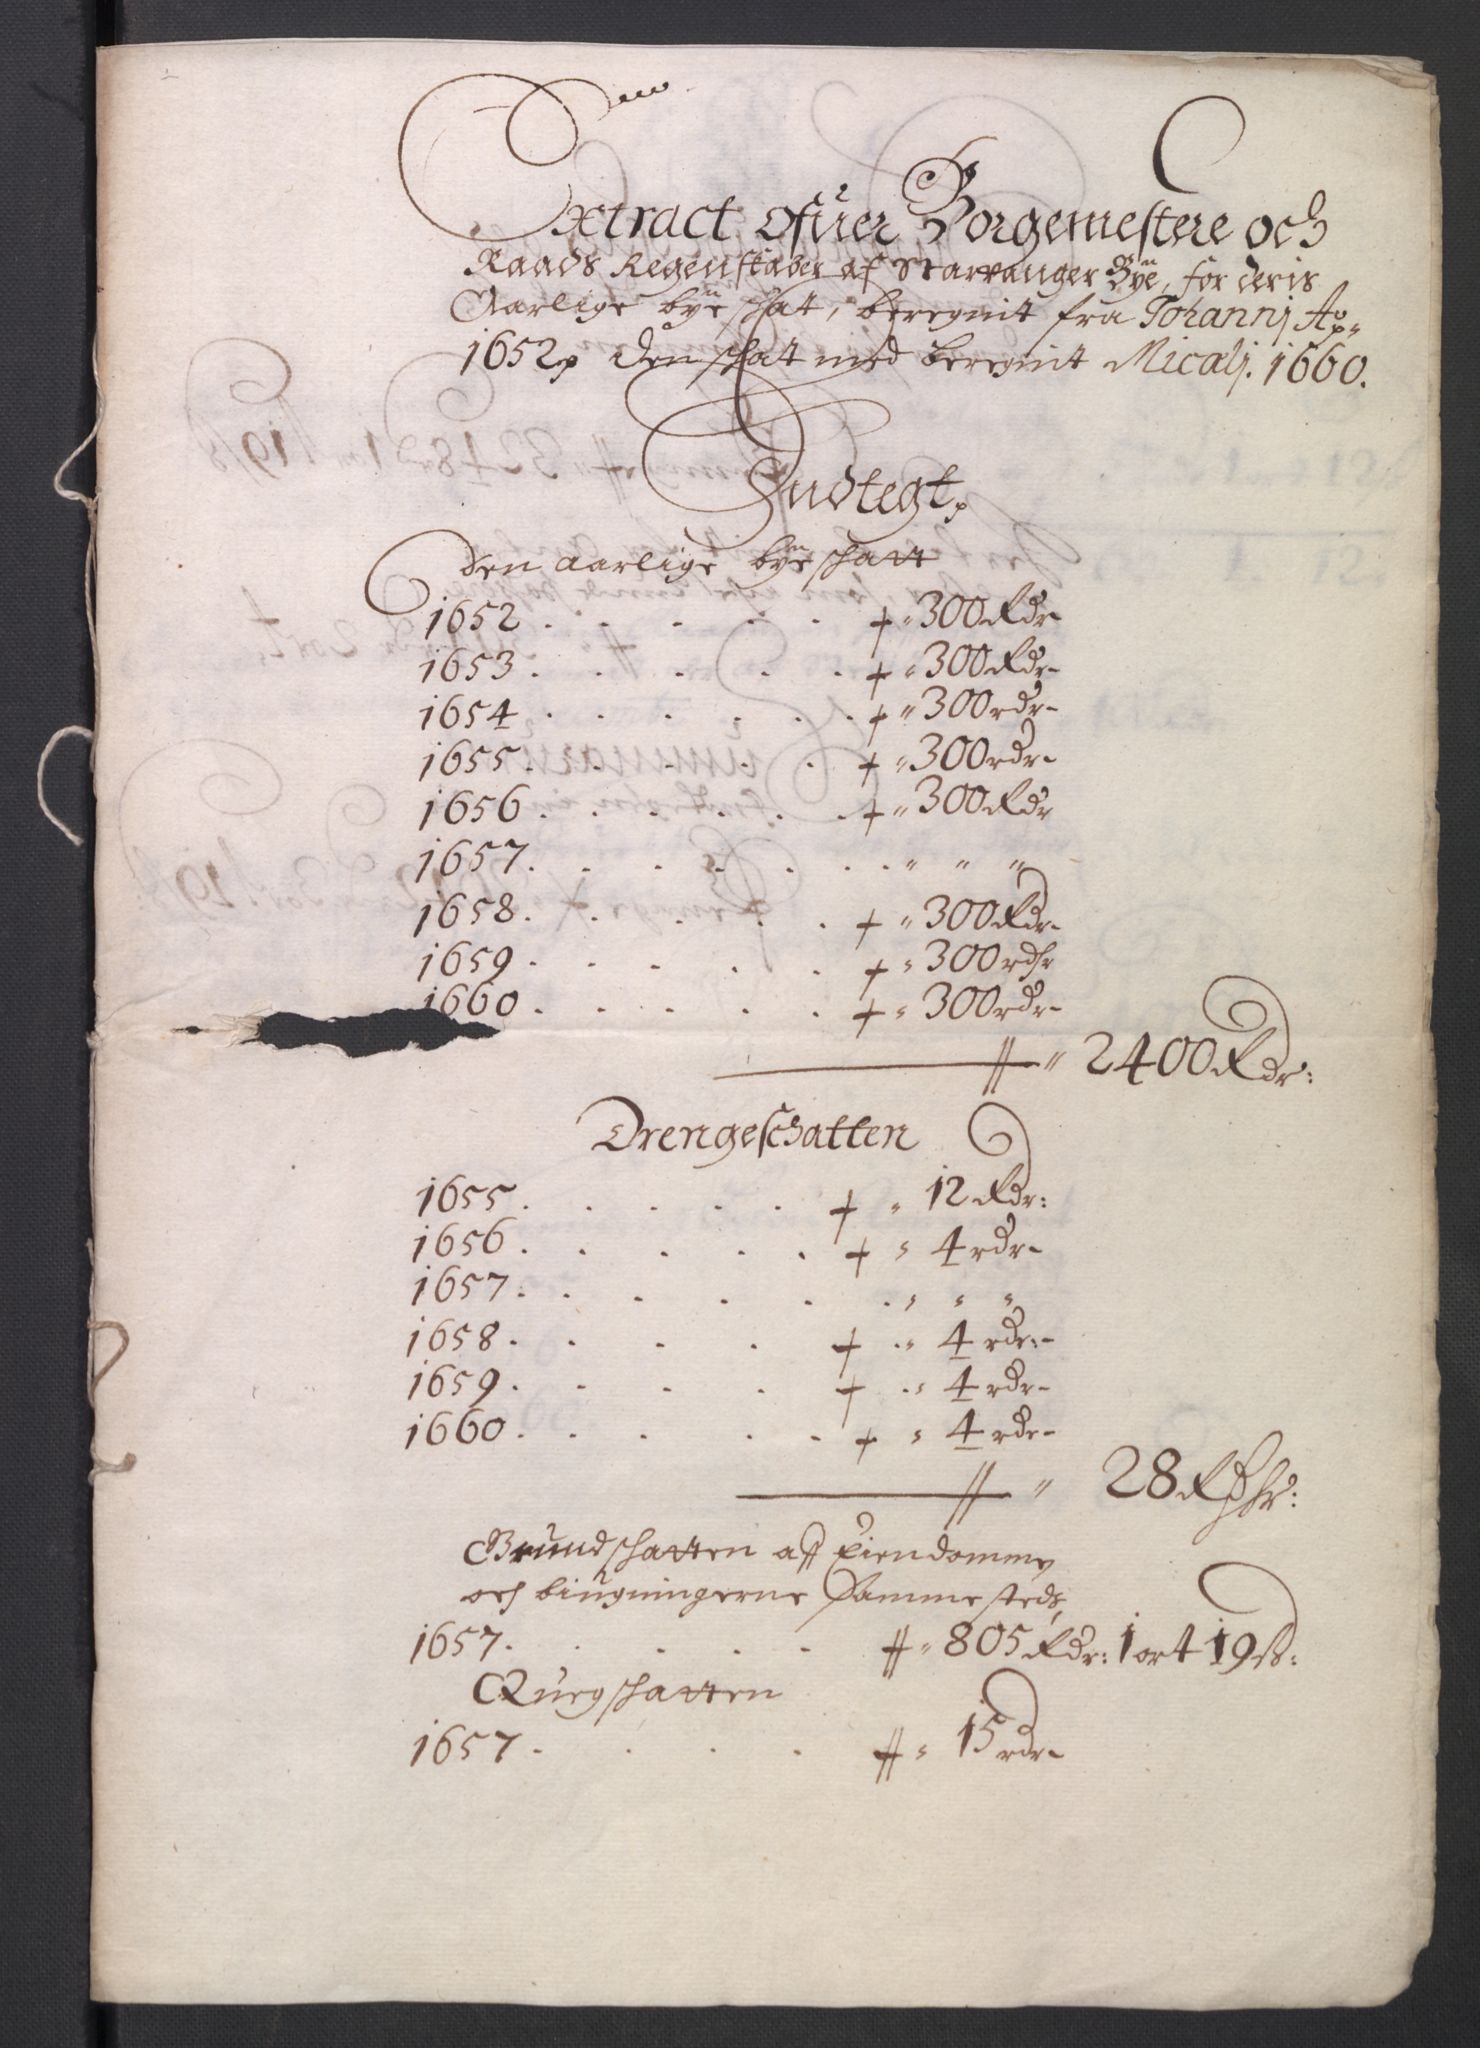 Extract ofuer Borgemestere och
Raads Regenskaber af Starvanger Bye, for deris
Aarlige bye schat, beregnit fra Johannj Ao
1652 den schat med beregnit Micalj. 1660.
Indtegt
Den aarlige bye schatt
1652 . . . . . . 300 Rdr
1653 . . . . . . 300 Rdr
1654 . . . . . . 300 rdr
1655 . . . . . . 300 rdr
1656 . . . . . . 300 Rdr
1657 . . . . . . " " "
1658 . . . . . . 300 Rdr
1659 . . . . . . 300 rdr
1660 . . . . . . 300 rdr
2400 Rdr:
Drengeschatten
1655 . . . . . . 12 Rdr:
1656 . . . . . . 4 rdr
1657 . . . . . . " " "
1658 . . . . 4 rdr:
1659 . . . . 4 rdr
1660 . . . . . 4 rdr
28 Rdr:
Grundschatten aff Eiendomme
och biugningerne samme steds,
1657 . . . . . 805 Rdr: 1 ort 19 ß:
Quegschatten
1657 . . . . 15 rdr